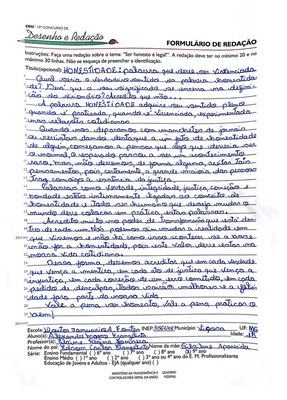 CGU | 10º CONCURSO DE
Desenho e Redação
FORMULÁRIO DE REDAÇÃO
Instruções: Faça uma redação sobre o tema: "Ser honesto é legal". A redação deve ter no mínimo 20 e no
máximo 30 linhas. Não se esqueça de preencher a identificação.
Título(opcional): HONESTIDADE: palavra que deve ser vivenciada
Qual seria o verdadeiro sentido da palavra honestida-
de? Será que o seu significado se encerra na defini-
ção do dicionário? Acredito que não...
A palavra HONESTIDADE adquire seu sentido pleno
quando é praticada, quando é vivenciada, experimentada
nas relações cotidianas.
Quando nos deparamos com manchetes de jornais
ou revistas dando destaque a um fato de honestidade
de alguém, começamos a pensar que algo que deveria ser
o normal, o esperado passou a ser um acontecimento
raro, mas não devemos, de forma alguma, aceitar tais
pensamentos, pois, certamente, a grande maioria das pessoas
traz consigo a essência da justiça.
Palavras como verdade, integridade, justiça, correção e
bondade estão intimamente ligadas ao conceito de
honestidade e todo ser humano que deseja mudar o
mundo deve colocar em prática estas palavras.
Acredito muito no poder de transformação que existe den-
tro de cada um. Nós podemos sim mudar a realidade em
que vivemos e não há como isso acontecer se a base
não for a honestidade, pois este valor deve estar na
nossa vida cotidiana.
Dessa forma, devemos acreditar que em cada verdade
que vença a mentira, em cada ato de justiça que vença a
injustiça, em cada correção de um erro cometido, em cada
pedido de desculpas, todos vamos melhorar e a feli-
cidade fará parte da nossa vida.
Vale a pena ser honesto, vale a pena praticar o
bem!
Escola: INEP: Município: UF: MG
Aluno(a): Idade:
Professor(a):
Nome do pai: Nome da mãe: Aparecida
Série: Ensino Fundamental ( ) 6º ano ( ) 7º ano ( ) 8º ano 9º ano
Ensino Médio ( ) 1º ano ( ) 2º ano ( ) 3º ano ou 4º ano do E. M. Profissionalizante
Educação de Jovens e Adultos - EJA (qualquer ano) ( )
MINISTÉRIO DA TRANSPARÊNCIA E GOVERNO
CONTROLADORIA-GERAL DA UNIÃO FEDERAL